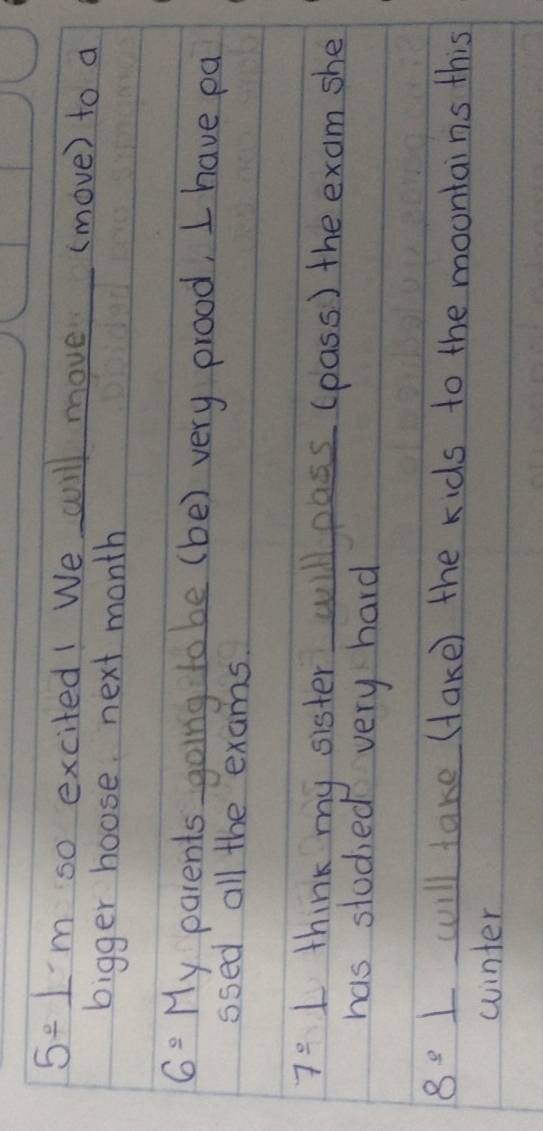 5÷ I'm so excited! We will move (move) to a
bigger hoose. next month
6º My parents going to be (be) very prood, I have pa
ssed all the exams.
7º I think my sister will pass (pass) the exam she
has studied very hard
8º I will take (take) the kids to the mountains this
winter